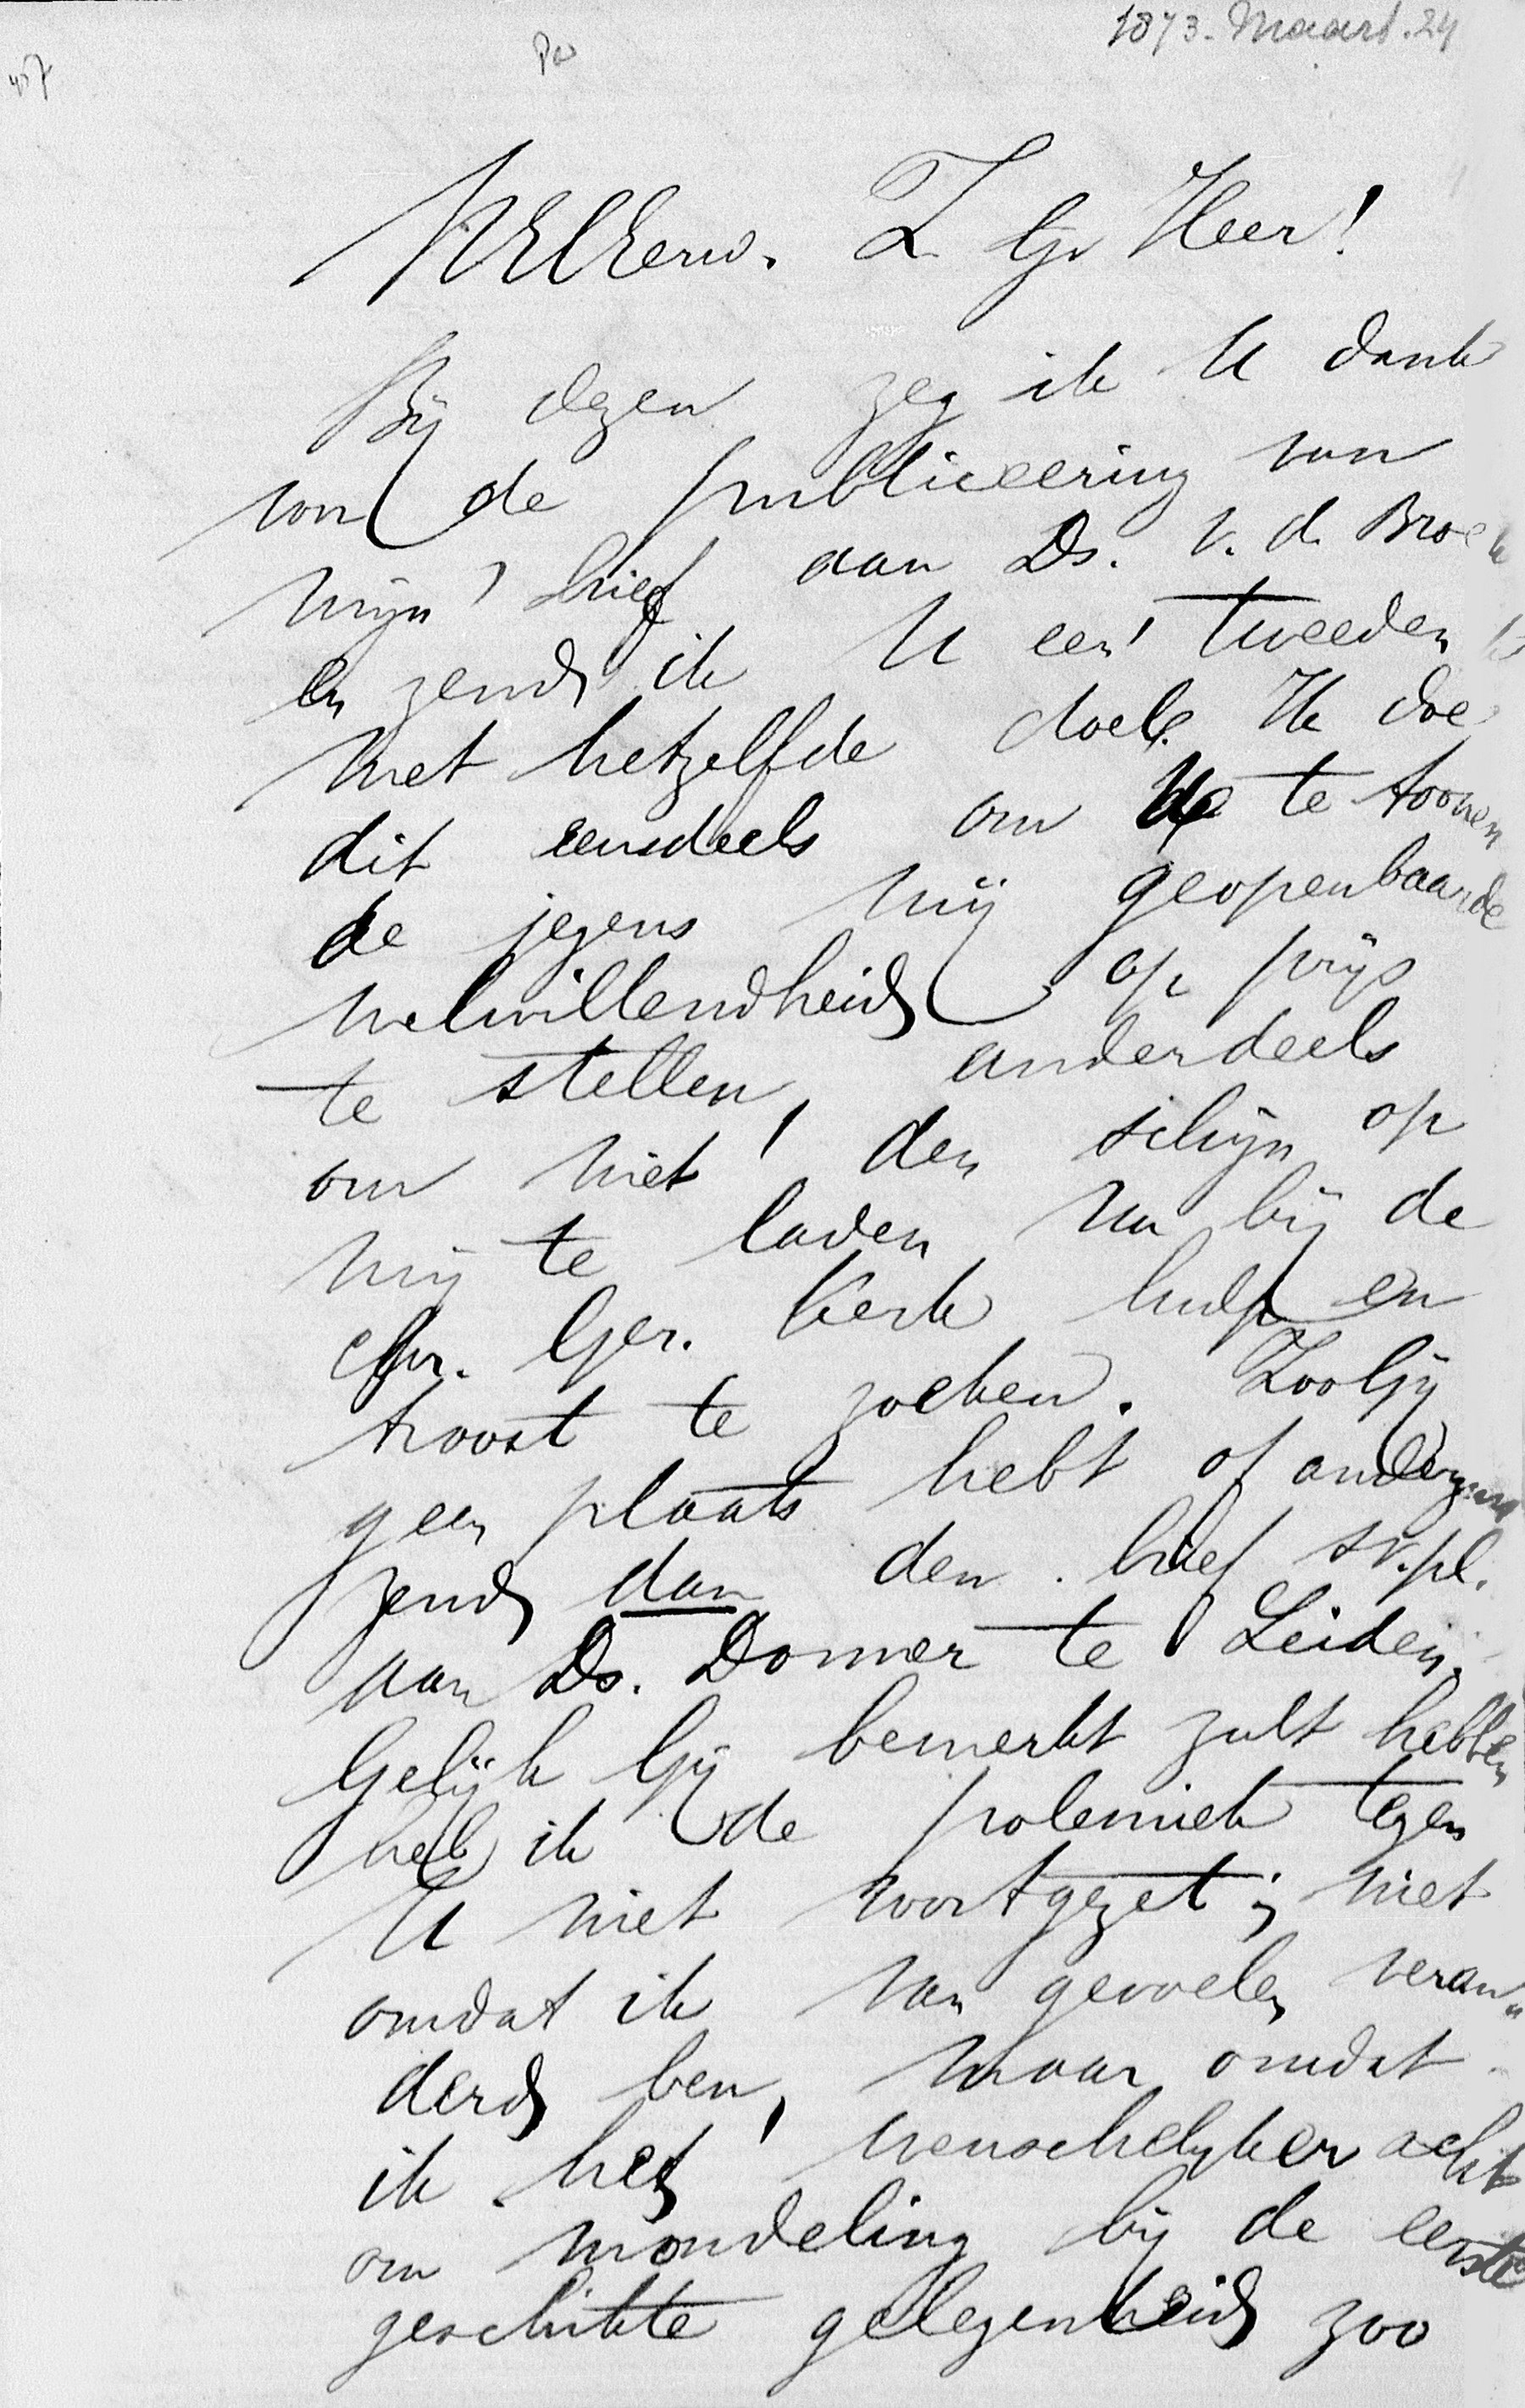 1873. Maart. 24
Pa
WelEerw. Z. Gel Heer!
Bij dezen zeg ik U dank
voor de publiceering van
mijn' brief aan Ds. v. d. Broek
en zend ik U een' tweeden
met hetzelfde doel. Ik doe
dit eensdeels om te toonen
de jegens mij geopenbaarde
welwillendheid op prijs
te stellen, anderdeels
om niet den schijn op
mij te laden nu bij de
Chr. Ger. Kerk hulp en
troost te zoeken. Zoo Gij
geen plaats hebt of anderzins
zend dan den brief s.v.pl.
aan Ds. Donner te Leiden.
Gelijk Gij bemerkt zult hebben
heb ik de polemiek tegen
U niet voortgezet; niet
omdat ik van gevoelen veran„
derd ben, maar omdat
ik het wenschelijker acht
om mondeling bij de eerste
geschikte gelegenheid zoo